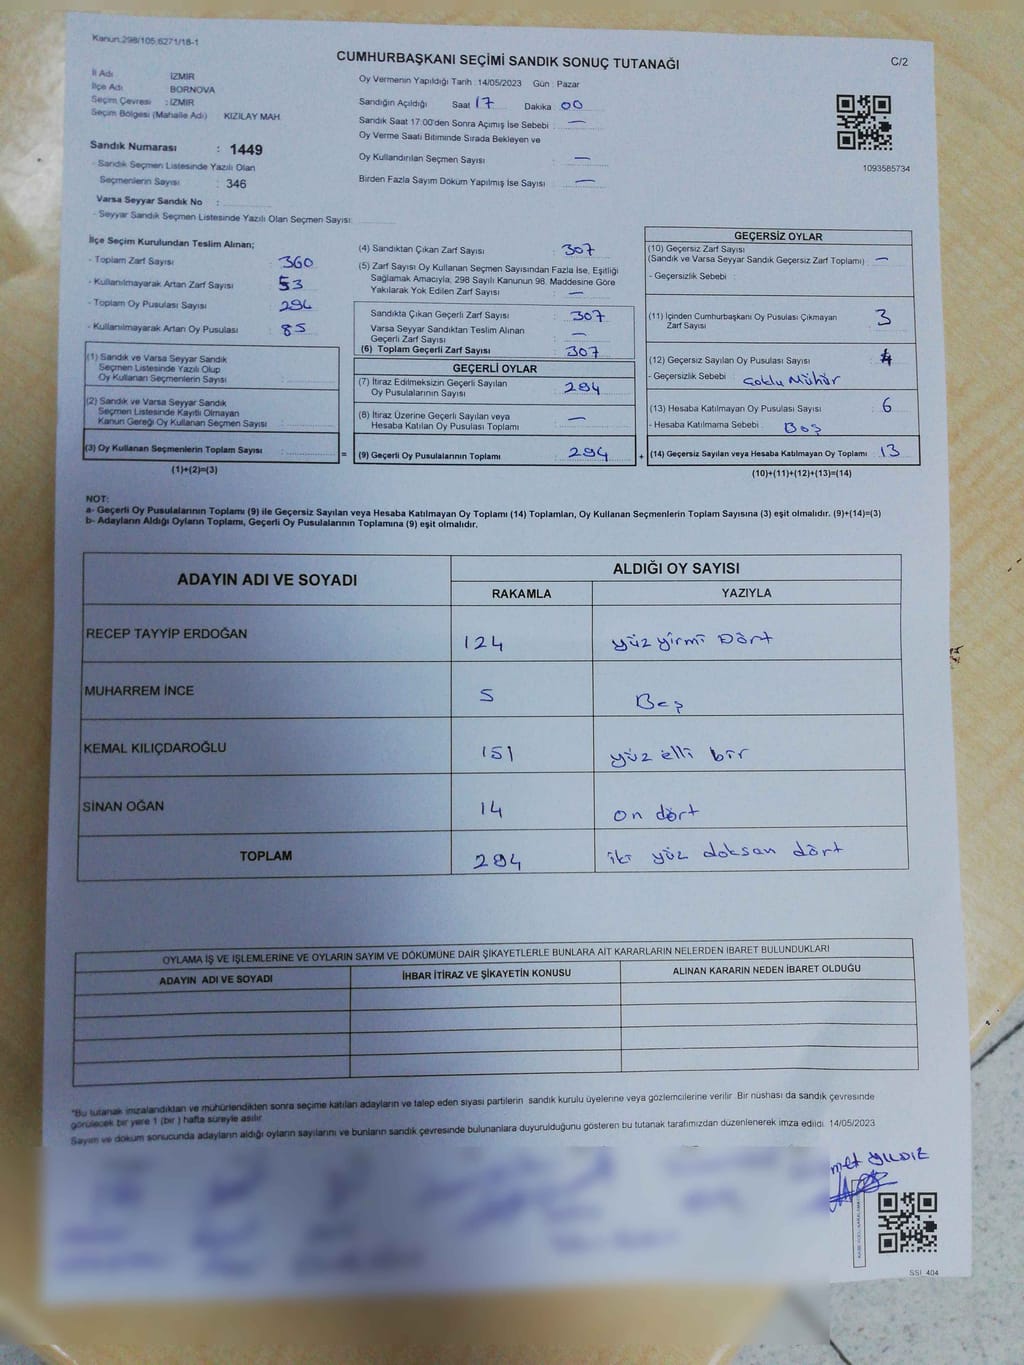 Kanun:298/105;6271/18-1
CUMHURBAŞKANI SEÇİMİ SANDIK SONUÇ TUTANAĞI
C/2
İl Adı İZMİR
İlçe Adı BORNOVA
Seçim Çevresi : İZMİR
Seçim Bölgesi (Mahalle Adı) KIZILAY MAH.
Sandık Numarası : 1449
- Sandık Seçmen Listesinde Yazılı Olan
Seçmenlerin Sayısı : 346
Varsa Seyyar Sandık No :
- Seyyar Sandık Seçmen Listesinde Yazılı Olan Seçmen Sayısı:
Oy Vermenin Yapıldığı Tarih : 14/05/2023 Gün : Pazar
Sandığın Açıldığı Saat 17 Dakika : 00
Sandık Saat 17.00'den Sonra Açımış İse Sebebi : —
Oy Verme Saati Bitiminde Sırada Bekleyen ve
Oy Kullandırılan Seçmen Sayısı : —
Birden Fazla Sayım Döküm Yapılmış İse Sayısı : —
1093585734
İlçe Seçim Kurulundan Teslim Alınan;
- Toplam Zarf Sayısı : 360
- Kullanılmayarak Artan Zarf Sayısı : 53
- Toplam Oy Pusulası Sayısı : 294
- Kullanılmayarak Artan Oy Pusulası : 85
(1) Sandık ve Varsa Seyyar Sandık
Seçmen Listesinde Yazılı Olup
Oy Kullanan Seçmenlerin Sayısı :
(2) Sandık ve Varsa Seyyar Sandık
Seçmen Listesinde Kayıtlı Olmayan
Kanun Gereği Oy Kullanan Seçmen Sayısı :
(3) Oy Kullanan Seçmenlerin Toplam Sayısı : =
(1)+(2)=(3)
(4) Sandıktan Çıkan Zarf Sayısı : 307
(5) Zarf Sayısı Oy Kullanan Seçmen Sayısından Fazla İse, Eşitliği
Sağlamak Amacıyla; 298 Sayılı Kanunun 98. Maddesine Göre
Yakılarak Yok Edilen Zarf Sayısı : —
Sandıkta Çıkan Geçerli Zarf Sayısı : 307
Varsa Seyyar Sandıktan Teslim Alınan
Geçerli Zarf Sayısı : —
(6) Toplam Geçerli Zarf Sayısı : 307
GEÇERLİ OYLAR
(7) İtiraz Edilmeksizin Geçerli Sayılan
Oy Pusulalarının Sayısı : 294
(8) İtiraz Üzerine Geçerli Sayılan veya
Hesaba Katılan Oy Pusulası Toplamı : —
(9) Geçerli Oy Pusulalarının Toplamı : 294 +
GEÇERSİZ OYLAR
(10) Geçersiz Zarf Sayısı
(Sandık ve Varsa Seyyar Sandık Geçersiz Zarf Toplamı) : —
- Geçersizlik Sebebi :
(11) İçinden Cumhurbaşkanı Oy Pusulası Çıkmayan
Zarf Sayısı : 3
(12) Geçersiz Sayılan Oy Pusulası Sayısı : 4
- Geçersizlik Sebebi : Çoklu Mühür
(13) Hesaba Katılmayan Oy Pusulası Sayısı : 6
- Hesaba Katılmama Sebebi : Boş
(14) Geçersiz Sayılan veya Hesaba Katılmayan Oy Toplamı : 13
(10)+(11)+(12)+(13)=(14)
NOT:
a- Geçerli Oy Pusulalarının Toplamı (9) ile Geçersiz Sayılan veya Hesaba Katılmayan Oy Toplamı (14) Toplamları, Oy Kullanan Seçmenlerin Toplam Sayısına (3) eşit olmalıdır. (9)+(14)=(3)
b- Adayların Aldığı Oyların Toplamı, Geçerli Oy Pusulalarının Toplamına (9) eşit olmalıdır.
ADAYIN ADI VE SOYADI
ALDIĞI OY SAYISI
RAKAMLA YAZIYLA
RECEP TAYYİP ERDOĞAN 124 yüz yirmi Dört
MUHARREM İNCE 5 Beş
KEMAL KILIÇDAROĞLU 151 yüz elli bir
SİNAN OĞAN 14 on dört
TOPLAM 294 iki yüz doksan dört
OYLAMA İŞ VE İŞLEMLERİNE VE OYLARIN SAYIM VE DÖKÜMÜNE DAİR ŞİKAYETLERLE BUNLARA AİT KARARLARIN NELERDEN İBARET BULUNDUKLARI
ADAYIN ADI VE SOYADI İHBAR İTİRAZ VE ŞİKAYETİN KONUSU ALINAN KARARIN NEDEN İBARET OLDUĞU
*Bu tutanak imzalandıktan ve mühürlendikten sonra seçime katılan adayların ve talep eden siyasi partilerin sandık kurulu üyelerine veya gözlemcilerine verilir. Bir nüshası da sandık çevresinde
görülecek bir yere 1 (bir) hafta süreyle asılır.
Sayım ve döküm sonucunda adayların aldığı oyların sayılarını ve bunların sandık çevresinde bulunanlara duyurulduğunu gösteren bu tutanak tarafımızdan düzenlenerek imza edildi. 14/05/2023
met YILDIZ
SSİ 404